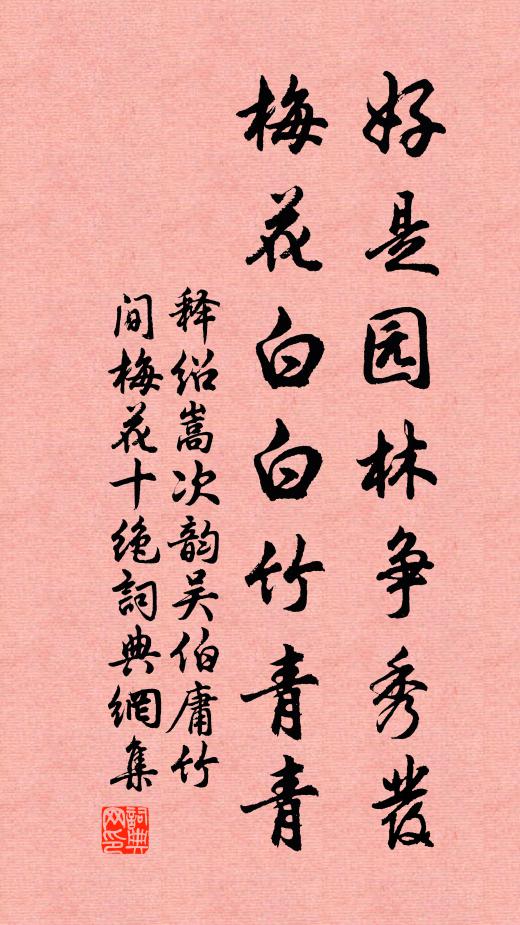 好是园林争秀發
梅花白白竹青青
释绍嵩次韵吴伯庸竹
间梅花十绝詞典網集
詞典网印